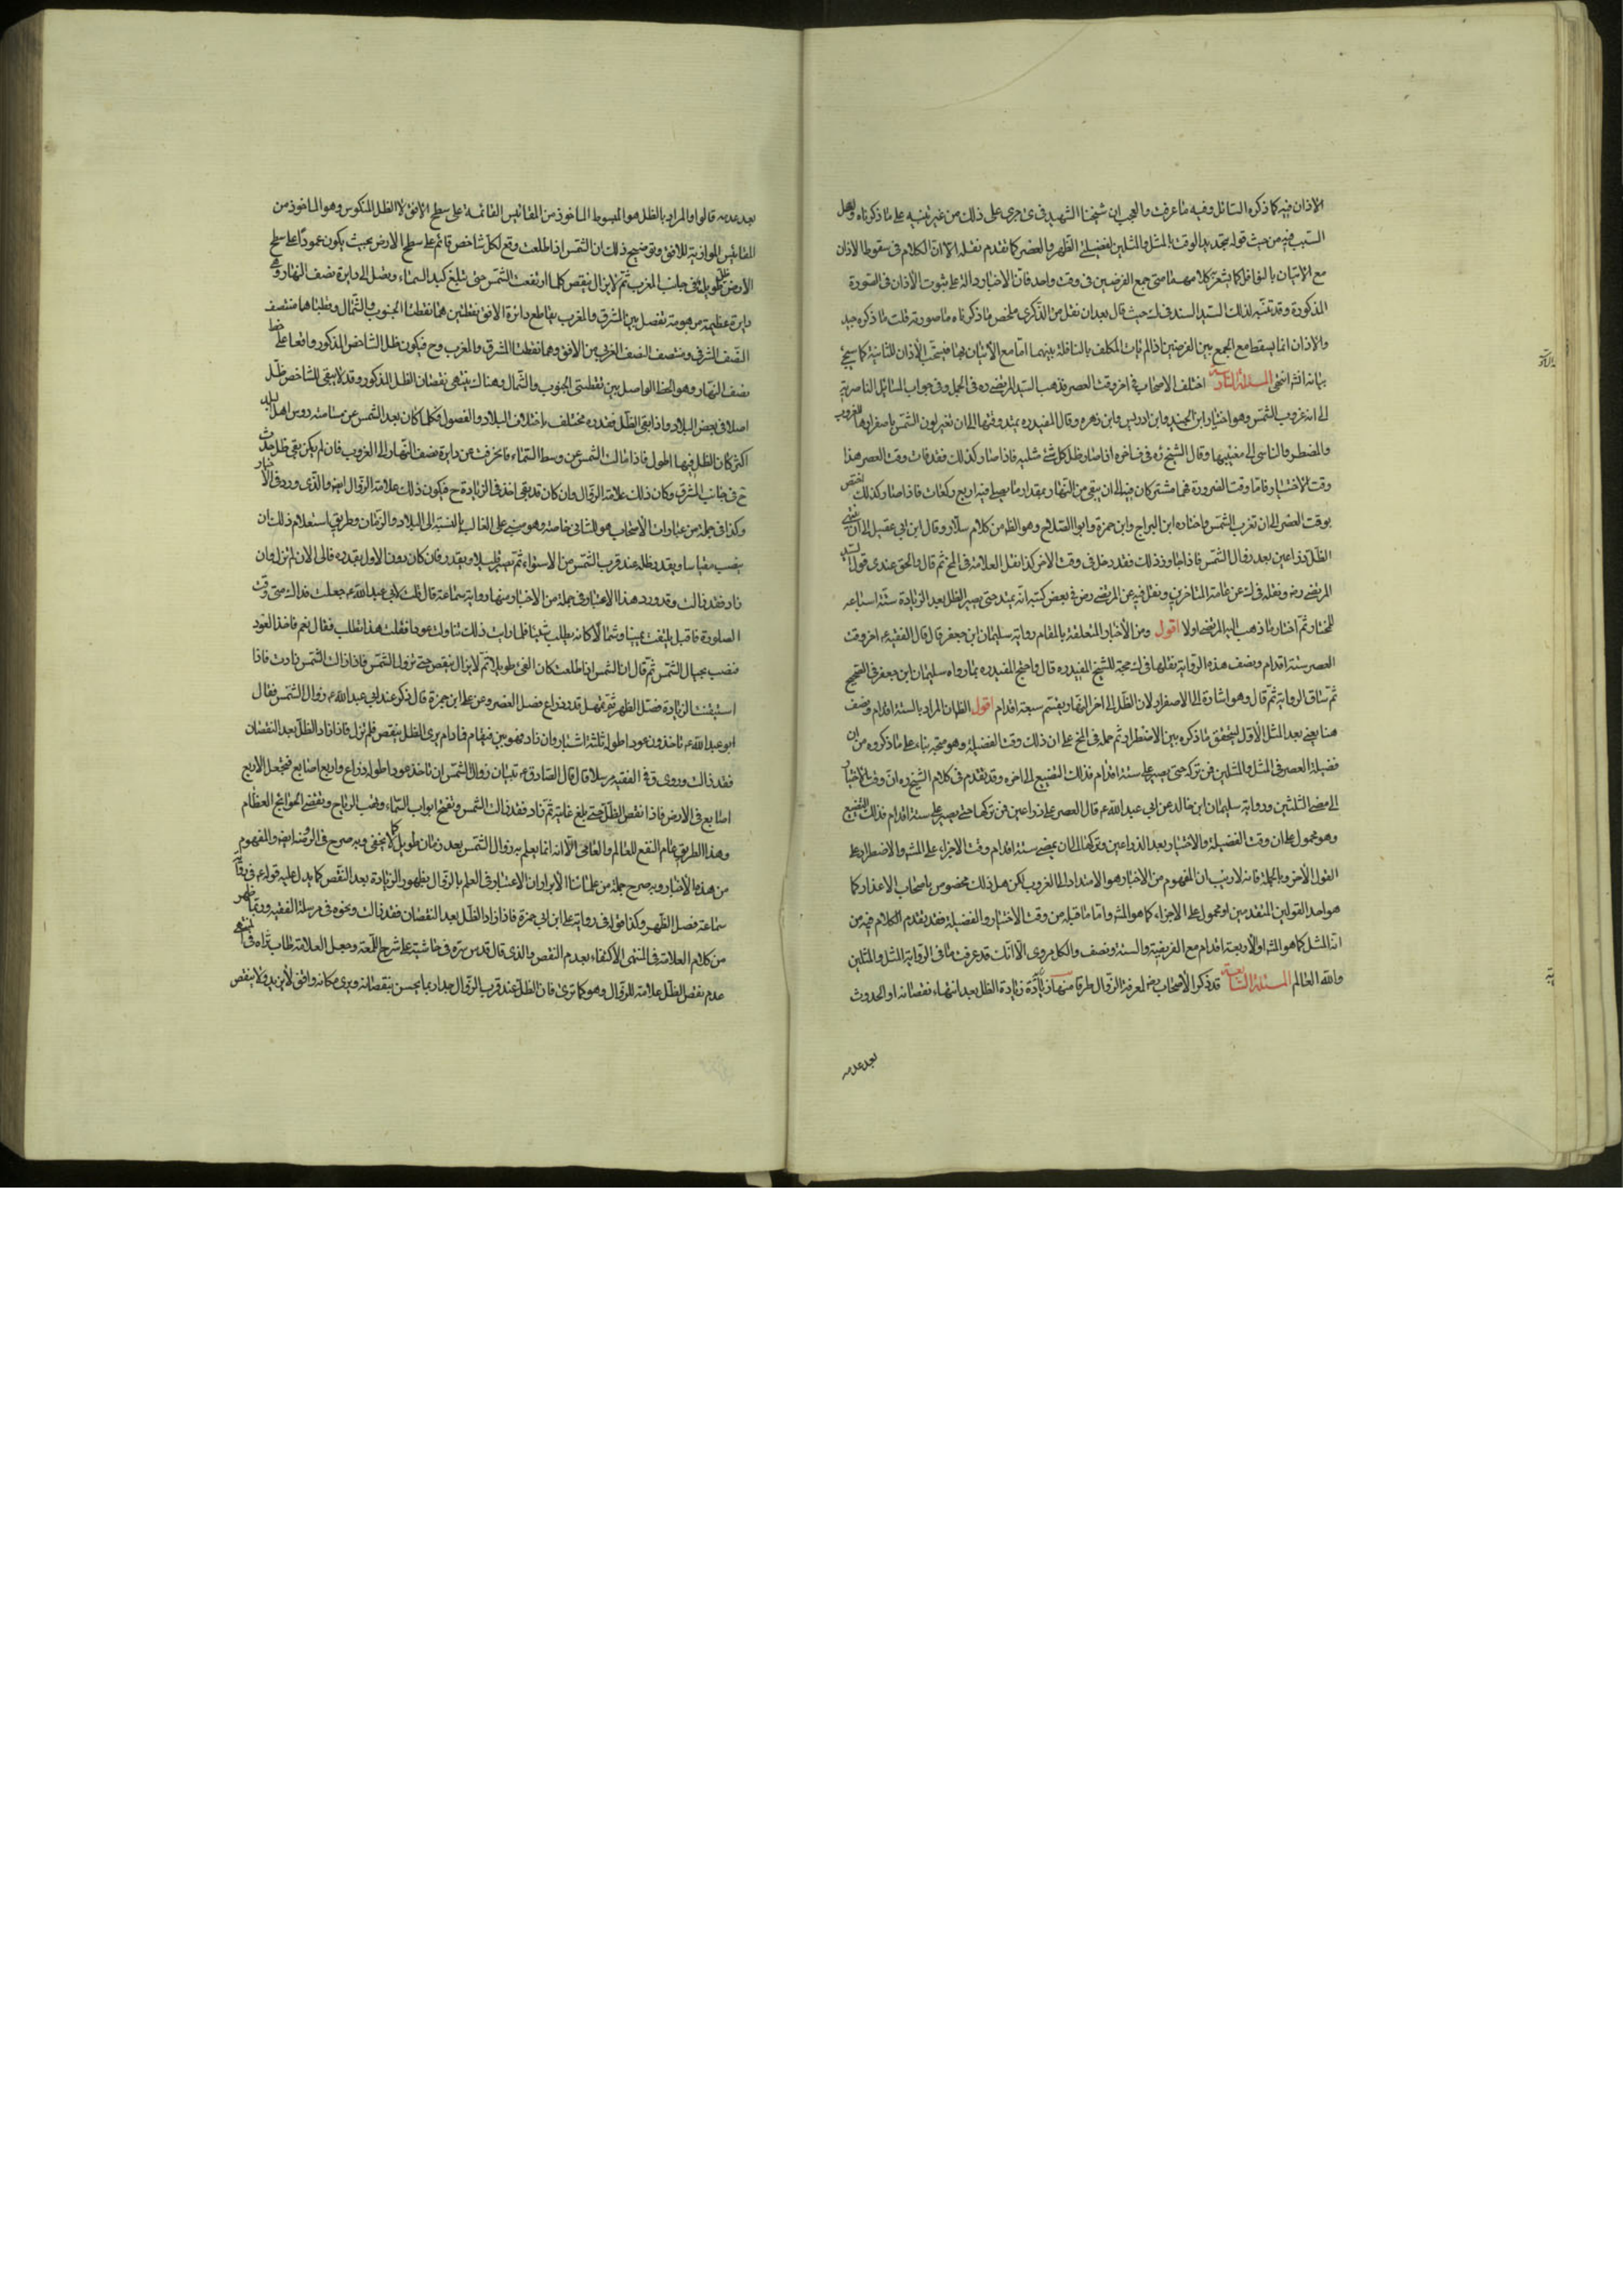 الاذان فيه كما ذكره السائل وفيه ما عرفت والعجب ان شيخنا الشهيد في ى جرى على ذلك من غير تنبيه على ما ذكرناه ولعل
السبب فيه من حيث قوله بتحديد الوقت بالمثل والمثلين لفضيلتي الظهر والعصر كما تقدم نقله الا ان الكلام في سقوط الاذان
مع الاتيان بالنوافل كما يشعر كلامه متى جمع الفرضين في وقت واحد فان الاخبار دالة على ثبوت الاذان في الصورة
المذكورة وقد تنبه لذلك السيد السند في ك حيث قال بعد ان نقل من الذكرى ملخص ما ذكرناه ما صورته قلت ما ذكره جيد
والاذان انما يسقط مع الجمع بين الفرضين اذا لم يات المكلف بالنافلة بينهما اما مع الاتيان بها فيستحب الاذان للثانية كما سيجئ
بيانه انش انتهى المسئلة السادسة اختلف الاصحاب في اخر وقت العصر فذهب السيد المرتضى ره في الجمل وفي جواب المسائل الناصرية
الى انه غروب الشمس وهو اختيار ابن الجنيد وابن ادريس وابن زهره وقال المفيد ره يمتد وقتها الى ان تغير لون الشمس باصفرارها للغروب
والمضطر والناسي الى مغيبها وقال الشيخ ره في اخره اذا صار ظل كل شئ مثليه فاذا صار كذلك فقد فات وقت العصر هذا
وقت الاختيار فاما وقت الضرورة فهما مشتركان فيه الى ان يبقى من النهار بمقدار ما يصلى فيه اربع ركعات فاذا صار كذلك اختص
بوقت العصر الى ان تغرب الشمس واختاره ابن البراج وابن حمزة وابو الصلاح وهو الظ من كلام سلار وقال ابن ابي عقيل الى ان ينتهى
الظل ذراعين بعد زوال الشمس فاذا جاوز ذلك فقد دخل في وقت الاخر كذا نقل العلامة في المخ ثم قال والحق عندي قول السيد
المرتضى رض ونقله في ك عن عامة المتاخرين ونقل فيه عن المرتضى رض في بعض كتبه انه يمتد حتى يصير الظل بعد الزيادة ستة اسباعه
للمختار ثم اختار ما ذهب اليه المرتضى اولا اقول ومن الاخبار المتعلقة بالمقام رواية سليمان ابن جعفر قال قال الفقيه ع اخر وقت
العصر ستة اقدام ونصف هذه الرواية نقلها في ك حجة للشيخ المفيد ره قال واحتج المفيد ره بما رواه سليمان ابن جعفر في الصحيح
ثم ساق الرواية ثم قال وهو اشارة الى الاصفرار لان الظل الى اخر النهار يقسم سبعة اقدام اقول الظ ان المراد بالستة اقدام ونصف
هنا يعني بعد المثل الاول ليتحقق ما ذكره بين الاضطرار ثم حمله في المخ على ان ذلك وقت الفضيلة وهو متجه بناء على ما ذكروه من ان
فضيلة العصر في المثل والمثلين فمن تركه حتى يصير على ستة اقدام فذلك التضييع الى اخره وقد تقدم في كلام الشيخ ره ان وقت الاختيار
الى مضى الثلثين ورواية سليمان ابن خالد عن ابي عبد الله ع قال العصر على ذراعين فمن تركها حتى تصير على ستة اقدام فذلك المضيع
وهو محمول على ان وقت الفضيلة والاختيار بعد الذراعين وتركها الى ان يمضى ستة اقدام وقت الاجزاء على المش والاضطرار على
القول الاخر وبالجملة فانه لا ريب ان المفهوم من الاخبار هو الامتداد الى الغروب لكن هل ذلك مخصوص باصحاب الاعذار كما
هو احد القولين المتقدمين او محمول على الاجزاء كما هو المش واما ما قبله من وقت الاختيار والفضيلة فقد تقدم الكلام فيه من
انه المثل كما هو المش او الاربعة اقدام مع الفريضة والستة ونصف والكل مروى الا انك قد عرفت ما في الرواية المثل والمثلين
والله العالم المسئلة السابعة قد ذكر الاصحاب رض لمعرفة الزوال طرقا منها زيادة الظل بعد انتهاء نقصانه او الحدوث
بعد عدمه
بعد عدمه قالوا والمراد بالظل هو المبسوط الماخوذ من المقائيس القائمة على سطح الافق لا الظل المنكوس وهو الماخوذ من
المقائيس الموازية للافق وتوضيح ذلك ان الشمس اذا طلعت وقع لكل شاخص قائم على سطح الارض بحيث يكون عمودا على سطح
الارض ظل طويل في جانب المغرب ثم لا يزال ينقص كلما ارتفعت الشمس حتى تبلغ كبد السماء وتصل الى دايرة نصف النهار وهي
دايرة عظيمة موهومة تفصل بين المشرق والمغرب تقاطع دايرة الافق بنقطتين هما نقطتا الجنوب والشمال وقطباها منتصف
النصف الشرقي ومنتصف النصف الغربي من الافق وهما نقطتا المشرق والمغرب وح فيكون ظل الشاخص المذكور واقعا على خط
نصف النهار وهو الخط الواصل بين نقطتي الجنوب والشمال وهناك ينتهى نقصان الظل المذكور وقد لا يبقى للشاخص ظل
اصلا في بعض البلاد واذا بقى الظل فقدره مختلف باختلاف البلاد والفصول فكلما كان بعد الشمس عن مسامتة رؤس اهل البلد
اكثر كان الظل فيها اطول فاذا مالت الشمس عن وسط السماء فانحرفت عن دايرة نصف النهار الى الغروب فان لم يكن بقى ظل حدث
ح في جانب المشرق وكان ذلك علامة الزوال وان كان قد بقى اخذ في الزيادة ح فيكون ذلك علامة الزوال ايض والذي ورد في الاخبار
وكذا في جملة من عبارات الاصحاب هو الثاني خاصة وهو مبني على الغالب بالنسبة الى البلاد والزمان وطريق استعلام ذلك ان
ينصب مقياسا ويقدر ظله عند قرب الشمس من الاستواء ثم يصبر قليلا ويقدر فان كان دون الاول بقدره فالى الان لم تزل وان
زاد فقد زالت وقد ورد هذا الاعتبار في جملة من الاخبار منها رواية سماعة قال قلت لابي عبد الله ع جعلت فداك متى وقت
الصلوة فاقبل يلتفت يمينا وشمالا كانه يطلب شيئا فلما رايت ذلك تناولت عودا فقلت هذا تطلب فقال نعم فاخذ العود
فنصب بحيال الشمس ثم قال ان الشمس اذا طلعت كان الفئ طويلا ثم لا يزال ينقص حتى تزول الشمس فاذا زالت الشمس زادت فاذا
استبنت الزيادة فصل الظهر ثم تمهل قدر ذراع فصل العصر وعن على ابن حمزة قال ذكر عند ابي عبد الله ع زوال الشمس فقال
ابو عبد الله ع تاخذون عودا طوله ثلثة اشبار وان زاد فهو بين فيقام فما دام يرى الظل ينقص فلم تزل فاذا زاد الظل بعد النقصان
فقد زالت وروى ق في الفقيه مرسلا قال قال الصادق ع تبيان زوال الشمس ان تاخذ عودا طوله ذراع واربع اصابع فتجعل الاربع
اصابع في الارض فاذا نقص الظل حتى يبلغ غايته ثم زاد فقد زالت الشمس وتفتح ابواب السماء وتهب الرياح وتقضى الحوائج العظام
وهذا الطريق عام النفع للعالم والعامي الا انه انما يعلم به زوال الشمس بعد زمان طويل كما لا يخفى وبه صرح في الروضة ايض والمفهوم
من هذه الاخبار وبه صرح جملة من علمائنا الابرار ان الاعتبار في العلم بالزوال بظهور الزيادة بعد النقص كما يدل عليه قوله ع في رواية
سماعة فصل الظهر وكذا قوله في رواية على ابن ابي حمزة فاذا زاد الظل بعد النقصان فقد زالت ونحوه في مرسلة الفقيه وربما ظهر
من كلام العلامة في المنتهى الاكتفاء بعدم النقص والذي قال قدس سره في حاشيته على شرح اللمعة وجعل العلامة طاب ثراه في المنتهى
عدم نقص الظل علامة للزوال وهو كما ترى فان الظل عند قرب الزوال جدا ربما يحس بنقصانه ويرى مكانه واقف لا يزيد ولا ينقص